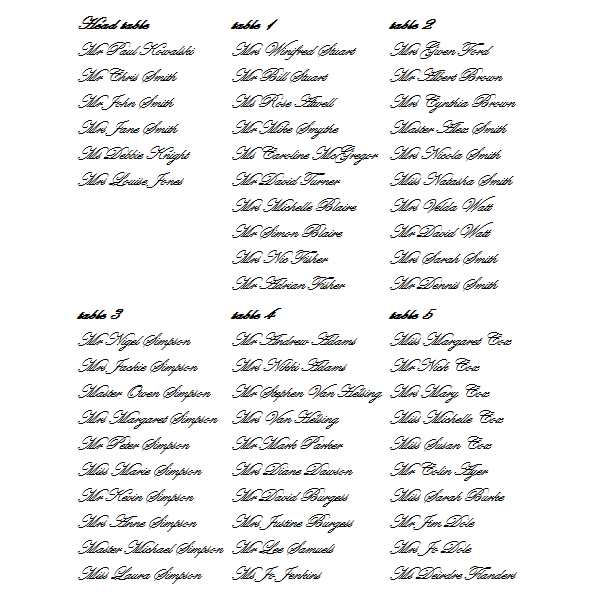 Head table
Mr Paul Kowalski
Mr Chris Smith
Mr John Smith
Mrs Jane Smith
Ms Debbie Knight
Mrs Louise Jones
table 1
Mrs Winifred Stuart
Mr Bill Stuart
Ms Rose Atwell
Mr Mike Smythe
Ms Caroline McGregor
Mr David Turner
Mrs Michelle Blaire
Mr Simon Blaire
Mrs Nic Fisher
Mr Adrian Fisher
table 2
Mrs Gwen Ford
Mr Albert Brown
Mrs Cynthia Brown
Master Alex Smith
Mrs Nicola Smith
Miss Natasha Smith
Mrs Velda Watt
Mr David Watt
Mrs Sarah Smith
Mr Dennis Smith
table 3
Mr Nigel Simpson
Mrs Jackie Simpson
Master Owen Simpson
Mrs Margaret Simpson
Mr Peter Simpson
Miss Marie Simpson
Mr Kevin Simpson
Mrs Anne Simpson
Master Michael Simpson
Miss Laura Simpson
table 4
Mr Andrew Adams
Mrs Nikki Adams
Mr Stephen Van Helsing
Mrs Van Helsing
Mr Mark Parker
Mrs Diane Dawson
Mr David Burgess
Mrs Justine Burgess
Mr Lee Samuels
Ms Jo Jenkins
table 5
Miss Margaret Cox
Mr Nick Cox
Mrs Mary Cox
Miss Michelle Cox
Miss Susan Cox
Mr Colin Ayer
Miss Sarah Burke
Mr Jim Dole
Mrs Jo Dole
Ms Deirdre Flanders